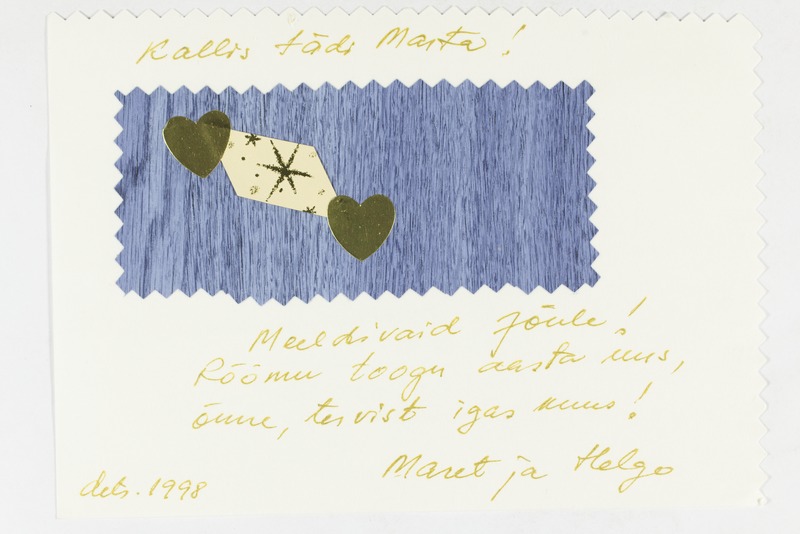 Kallis tädi Marta!
Meeldivaid jõule!
Rõõmu toogu aasta uus,
õnne, tervist igas kuus!
Maret ja Helgo
dets. 1998